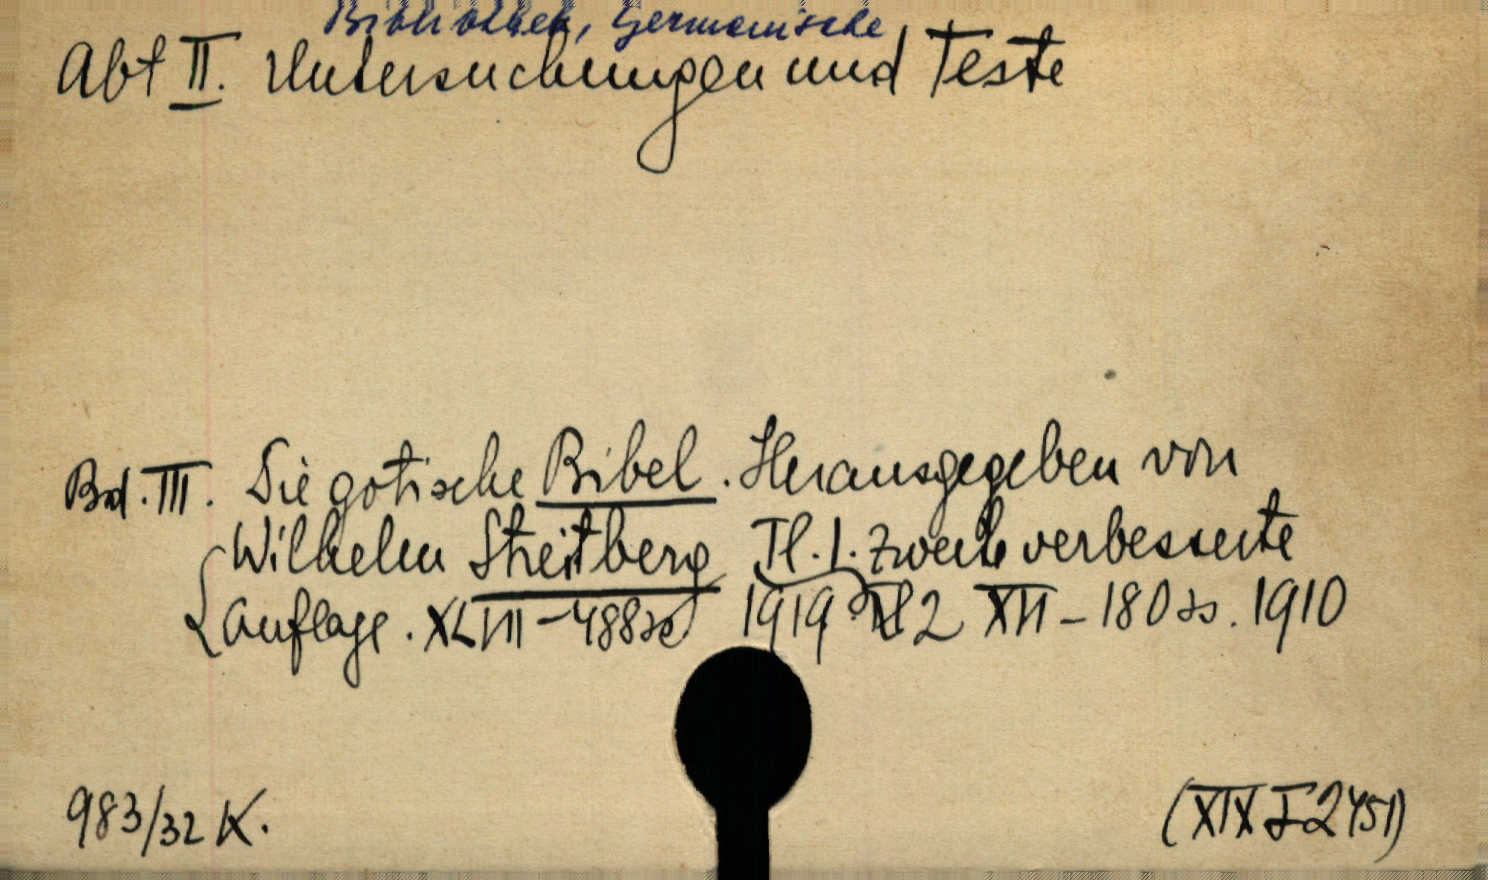 Bibliothek, Germanische
Abt II. Untersuchungen und Teste
Bd. III. Die gotische Bibel. Herausgegeben von
Wilhelm Streitberg Tl. 1. Zweite verbesserte
Auflage. XLVIII - 488 ss 1919. Tl 2 XII - 180 ss. 1910
983/32 K.
(XIX I 2451)